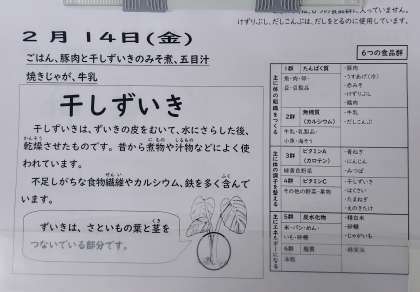 に入っていません。
けずりぶし、だしこんぶは、だしをとるのに使用しています。
2月14日(金)
ごはん、豚肉と干しずいきのみそ煮、五目汁
焼きじゃが、牛乳
干しずいき
干しずいきは、ずいきの皮をむいて、水にさらした後、
乾燥させたものです。昔から煮物や汁物などによく使
われています。
不足しがちな食物繊維やカルシウム、鉄を多く含んで
います。
ずいきは、さといもの葉と茎を
つないでいる部分です。
6つの食品群
主に体の組織をつくる
1群 たんぱく質
魚・肉・卵・
豆・豆製品
・豚肉
・うすあげ(冷)
・赤みそ
・けずりぶし
・鶏肉
2群 無機質
(カルシウム)
牛乳・乳製品・
小魚・海そう
・牛乳
・だしこんぶ
主に体の調子を整える
3群 ビタミンA
(カロテン)
緑黄色野菜
・青ねぎ
・にんじん
・みつば
4群 ビタミンC
その他の野菜・果物
・干しずいき
・はくさい
・たまねぎ
・えのきたけ
主にエネルギーになる
5群 炭水化物
米・パン・めん・
いも・砂糖
・精白米
・砂糖
・じゃがいも
6群 脂質
油脂
・綿実油